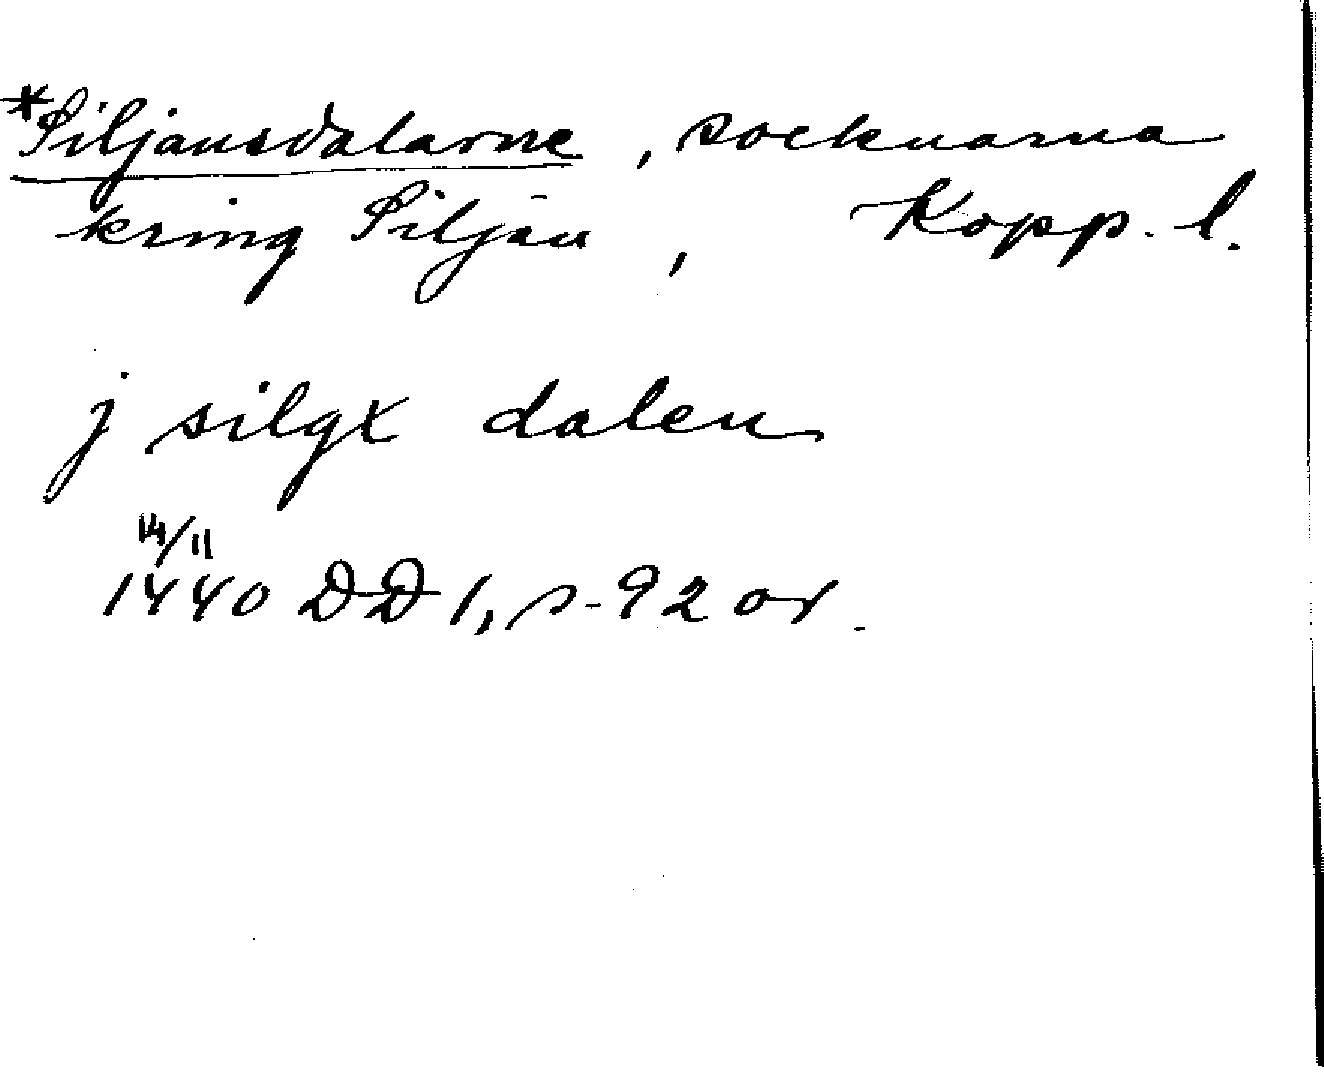 *Siljansdalarne, socknarna
kring Siljan, Kopp. l.
j silgx dalen
14/11
1440 DD 1, s. 92 or.